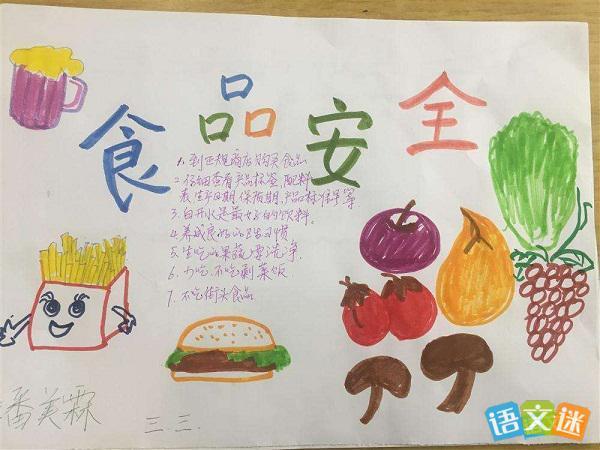 食品安全
1.到正规商店购买食品
2.仔细查看产品标签,配料
表生产日期,保质期,产品材保等等
3.白开水是最好的饮料.
4.养成良好的卫生习惯
5.生吃瓜果蔬要洗净.
6.少吃.不吃剩菜饭
7.不吃街头食品
潘美霖
三.三.
语文迷